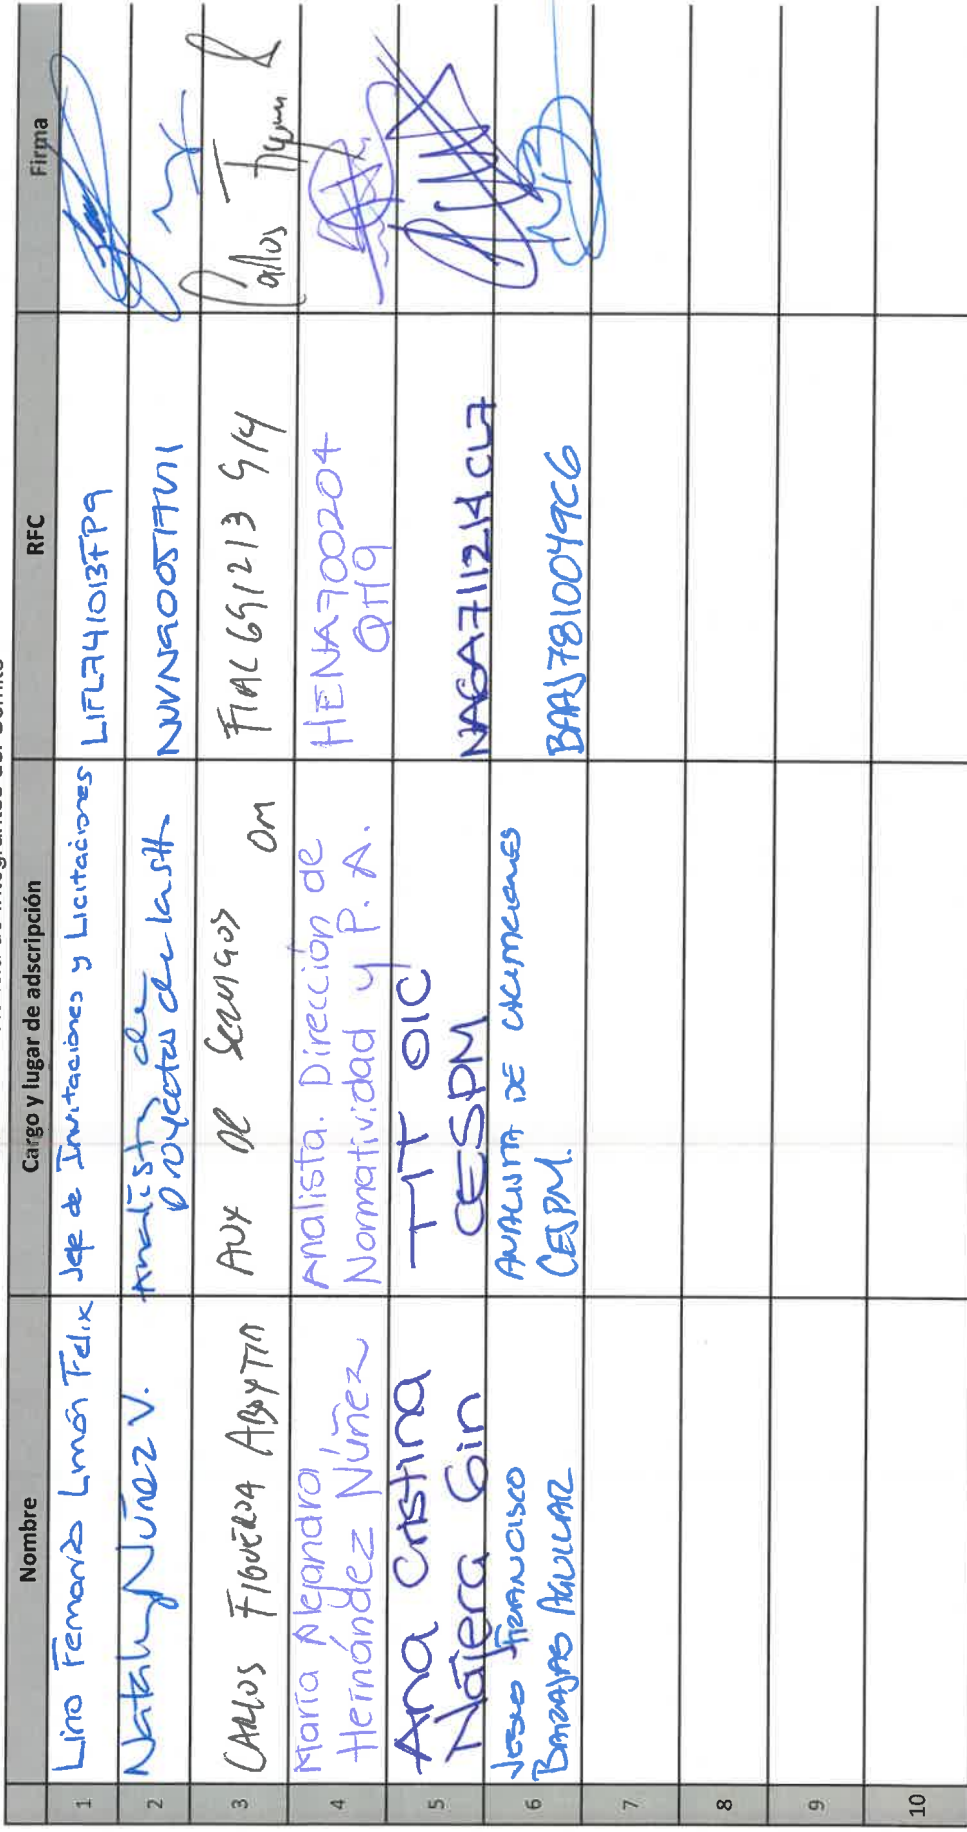 Nombre
Cargo y lugar de adscripción
RFC
Firma
1
Lino Fernando Limón Felix
Jefe de Invitaciones y Licitaciones
LIFL741013FP9
2
Nataly Núñez V.
Analista de
proyectos de la
NUVN900517
3
CARLOS FIGUEROA ABOYTIA
AUX DE SERVICIOS OM
FIAC691213 G14
Carlos
4
María Alejandra
Hernández Núñez
Analista. Dirección de
Normatividad y P. A.
HENA700204
QH9
5
Ana Cristina
Nájera Gin
TIT OIC
CESPM
NAGA711214CL7
6
JESUS FRANCISCO
BARAJAS AGUILAR
ANALISTA DE LICITACIONES
CESPM.
BAAJ7810049C6
7
8
9
10